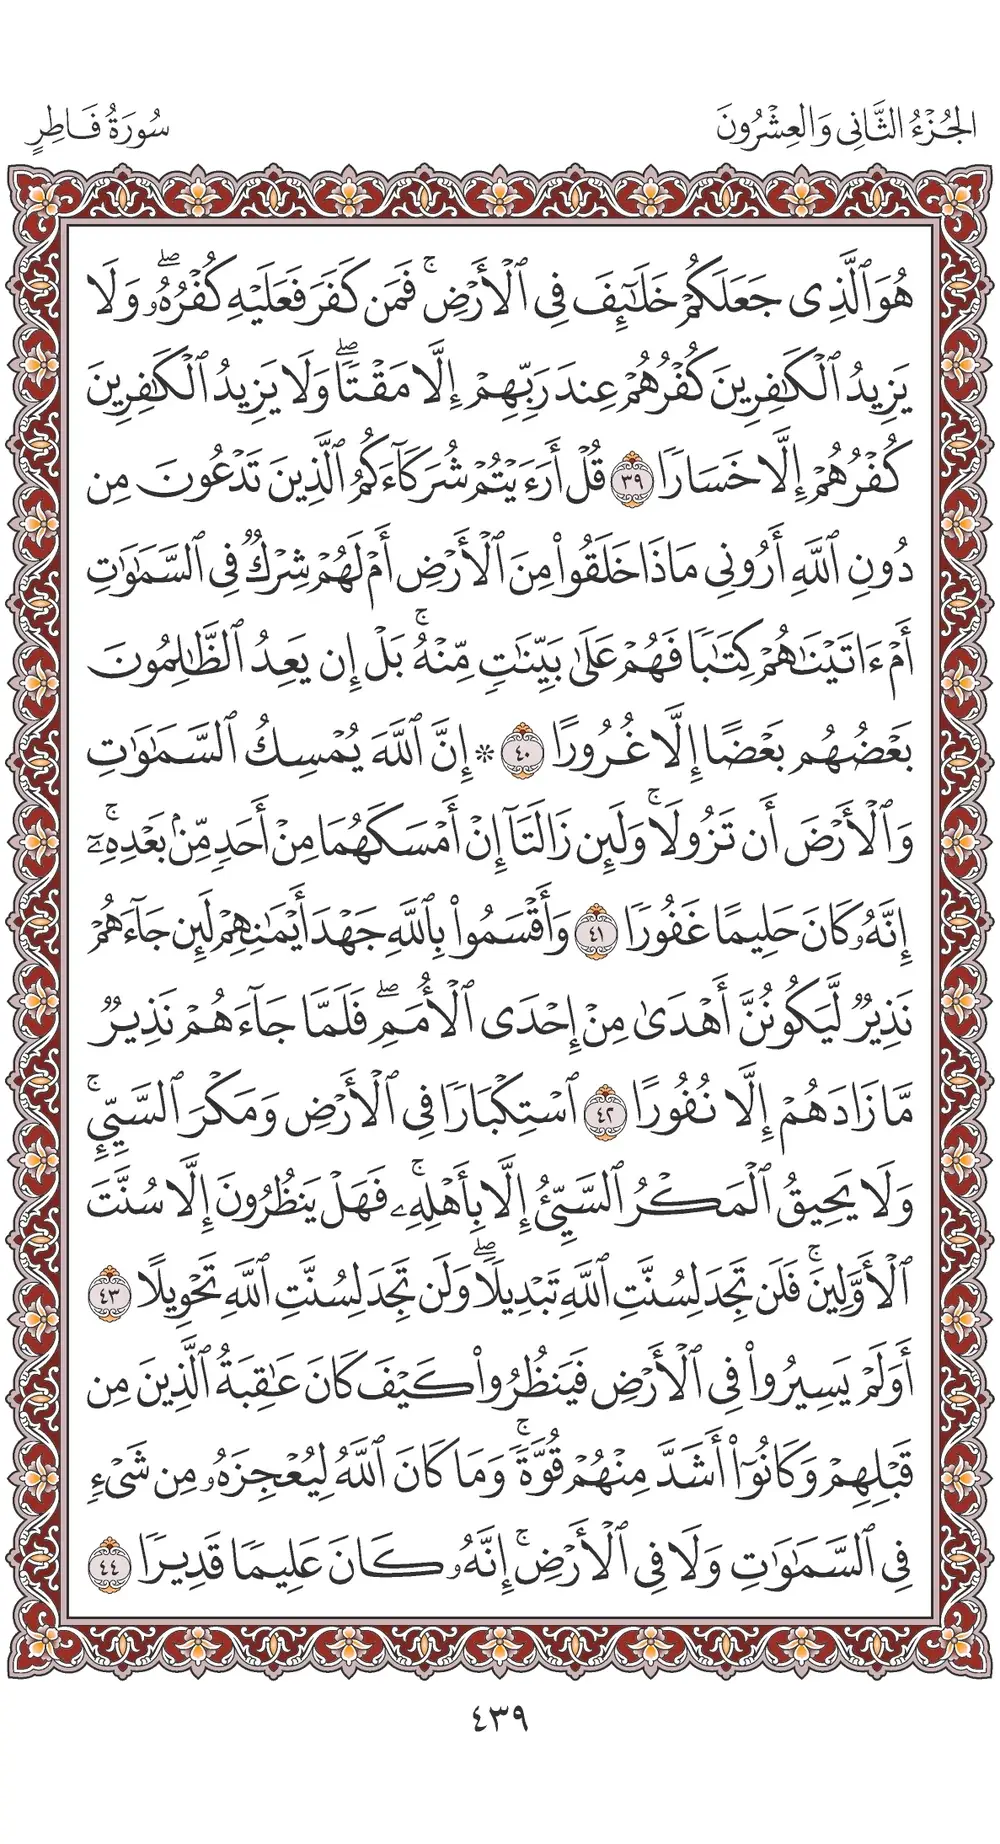 الجُزْءُ الثَّانِي وَالعِشْرُونَ
سُورَةُ فَاطِرٍ
هُوَ ٱلَّذِى جَعَلَكُمْ خَلَـٰٓئِفَ فِى ٱلْأَرْضِ ۚ فَمَن كَفَرَ فَعَلَيْهِ كُفْرُهُۥ ۖ وَلَا
يَزِيدُ ٱلْكَـٰفِرِينَ كُفْرُهُمْ عِندَ رَبِّهِمْ إِلَّا مَقْتًا ۖ وَلَا يَزِيدُ ٱلْكَـٰفِرِينَ
كُفْرُهُمْ إِلَّا خَسَارًا ٣٩ قُلْ أَرَءَيْتُمْ شُرَكَآءَكُمُ ٱلَّذِينَ تَدْعُونَ مِن
دُونِ ٱللَّهِ أَرُونِى مَاذَا خَلَقُوا۟ مِنَ ٱلْأَرْضِ أَمْ لَهُمْ شِرْكٌ فِى ٱلسَّمَـٰوَٰتِ
أَمْ ءَاتَيْنَـٰهُمْ كِتَـٰبًا فَهُمْ عَلَىٰ بَيِّنَتٍ مِّنْهُ ۚ بَلْ إِن يَعِدُ ٱلظَّـٰلِمُونَ
بَعْضُهُم بَعْضًا إِلَّا غُرُورًا ٤٠ ۞ إِنَّ ٱللَّهَ يُمْسِكُ ٱلسَّمَـٰوَٰتِ
وَٱلْأَرْضَ أَن تَزُولَا ۚ وَلَئِن زَالَتَآ إِنْ أَمْسَكَهُمَا مِنْ أَحَدٍ مِّنۢ بَعْدِهِۦٓ ۚ
إِنَّهُۥ كَانَ حَلِيمًا غَفُورًا ٤١ وَأَقْسَمُوا۟ بِٱللَّهِ جَهْدَ أَيْمَـٰنِهِمْ لَئِن جَآءَهُمْ
نَذِيرٌ لَّيَكُونُنَّ أَهْدَىٰ مِنْ إِحْدَى ٱلْأُمَمِ ۖ فَلَمَّا جَآءَهُمْ نَذِيرٌ
مَّا زَادَهُمْ إِلَّا نُفُورًا ٤٢ ٱسْتِكْبَارًا فِى ٱلْأَرْضِ وَمَكْرَ ٱلسَّيِّئِ ۚ
وَلَا يَحِيقُ ٱلْمَكْرُ ٱلسَّيِّئُ إِلَّا بِأَهْلِهِۦ ۚ فَهَلْ يَنظُرُونَ إِلَّا سُنَّتَ
ٱلْأَوَّلِينَ ۚ فَلَن تَجِدَ لِسُنَّتِ ٱللَّهِ تَبْدِيلًا ۖ وَلَن تَجِدَ لِسُنَّتِ ٱللَّهِ تَحْوِيلًا ٤٣
أَوَلَمْ يَسِيرُوا۟ فِى ٱلْأَرْضِ فَيَنظُرُوا۟ كَيْفَ كَانَ عَـٰقِبَةُ ٱلَّذِينَ مِن
قَبْلِهِمْ وَكَانُوٓا۟ أَشَدَّ مِنْهُمْ قُوَّةً ۚ وَمَا كَانَ ٱللَّهُ لِيُعْجِزَهُۥ مِن شَىْءٍ
فِى ٱلسَّمَـٰوَٰتِ وَلَا فِى ٱلْأَرْضِ ۚ إِنَّهُۥ كَانَ عَلِيمًا قَدِيرًا ٤٤
٤٣٩